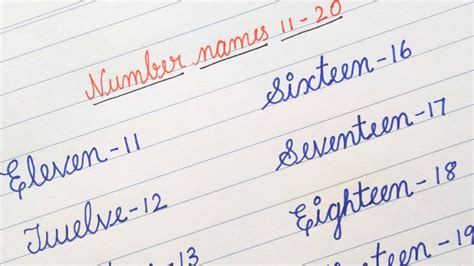 Number names 11-20
Eleven-11
Twelve-12
-13
Sixteen-16
Seventeen-17
Eighteen-18
teen-19